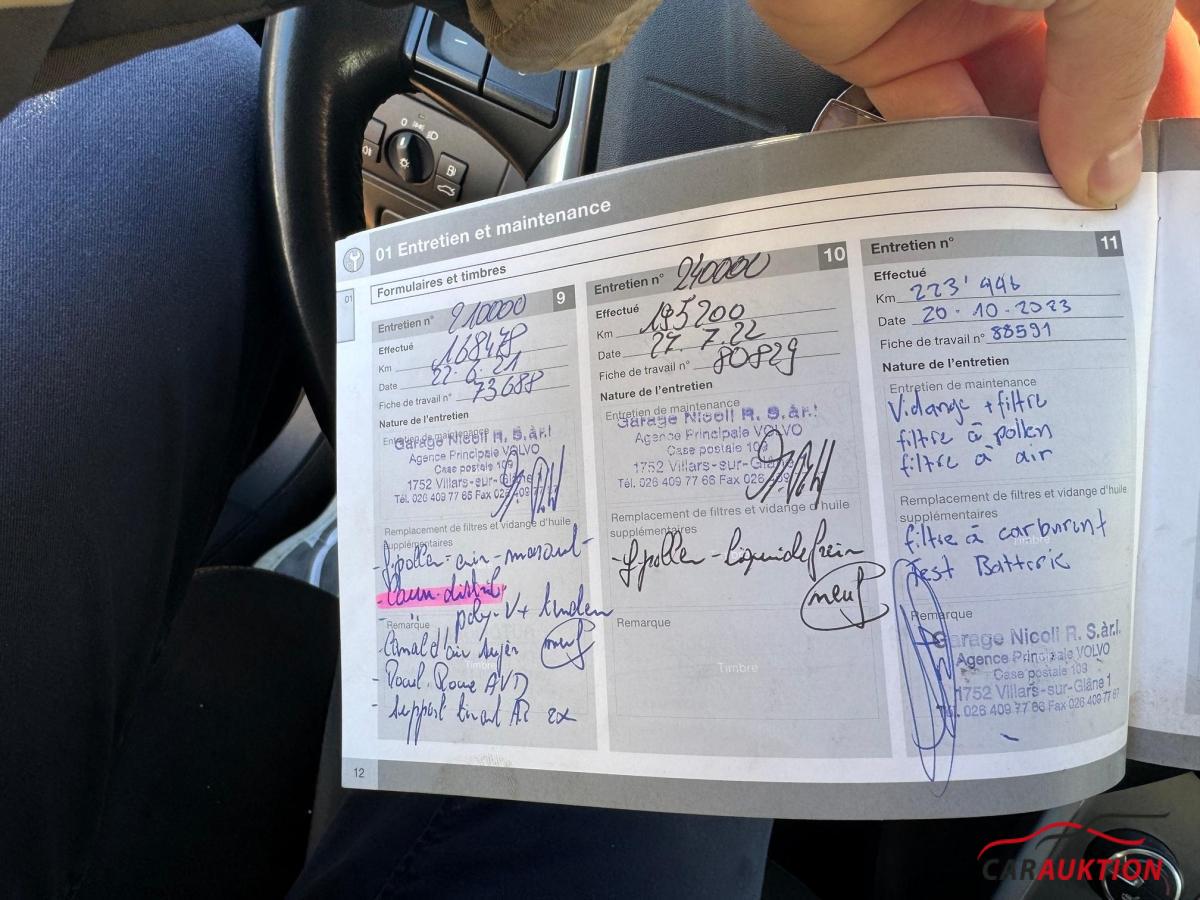 01 Entretien et maintenance
01
Formulaires et timbres
Entretien n° 210000 9
Effectué
Km 168478
Date 22.6.21
Fiche de travail n° 73688
Nature de l'entretien
Entretien de maintenance
Garage Nicoli R. S.àr.l
Agence Principale VOLVO
Case postale 109
1752 Villars-sur-Glâne
Tél. 026 409 77 66 Fax 026 409
Remplacement de filtres et vidange d'huile
supplémentaires
- f. pollen - air - mazout -
- Courr. distrib
- poly-V + tendeur
Remarque
- Canal d'air supér neuf
Timbre
- Roul. Roue AVD
- Support tirant AR 2x
12
Entretien n° 240000 10
Effectué
Km 195200
Date 27.7.22
Fiche de travail n° 80829
Nature de l'entretien
Entretien de maintenance
Garage Nicoli R. S.àr.l
Agence Principale VOLVO
Case postale 109
1752 Villars-sur-Glâne
Tél. 026 409 77 66 Fax 026 409
Remplacement de filtres et vidange d'huile
supplémentaires
- f pollen - liquide frein
neuf
Remarque
Timbre
Entretien n° 11
Effectué
Km 223'446
Date 20.10.2023
Fiche de travail n° 88591
Nature de l'entretien
Entretien de maintenance
Vidange + filtre
filtre à pollen
filtre à air
Remplacement de filtres et vidange d'huile
supplémentaires
filtre à carburant
Timbre
Test Batterie
Remarque
Garage Nicoli R. S.àr.l.
Agence Principale VOLVO
Case postale 109
1752 Villars-sur-Glâne 1
Tél. 026 409 77 66 Fax 026 409 77 67
CARAUKTION